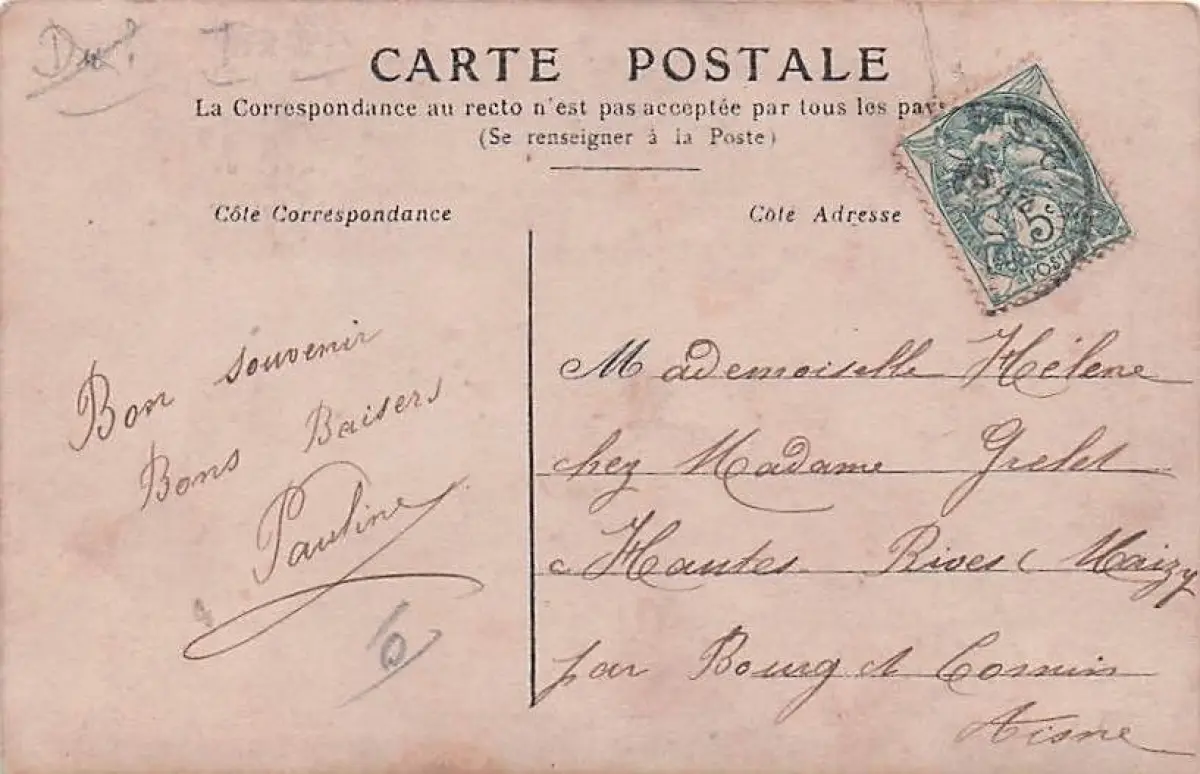 CARTE POSTALE
La Correspondance au recto n'est pas acceptée par tous les pays
(Se renseigner à la Poste)
Côté Correspondance
Côté Adresse
5c
POSTES
Bon souvenir
Bons Baisers
Pauline
Mademoiselle Hélène
chez Madame Grelet
a Hautes Rives (Maizy
par Bourg et Comin
Aisne